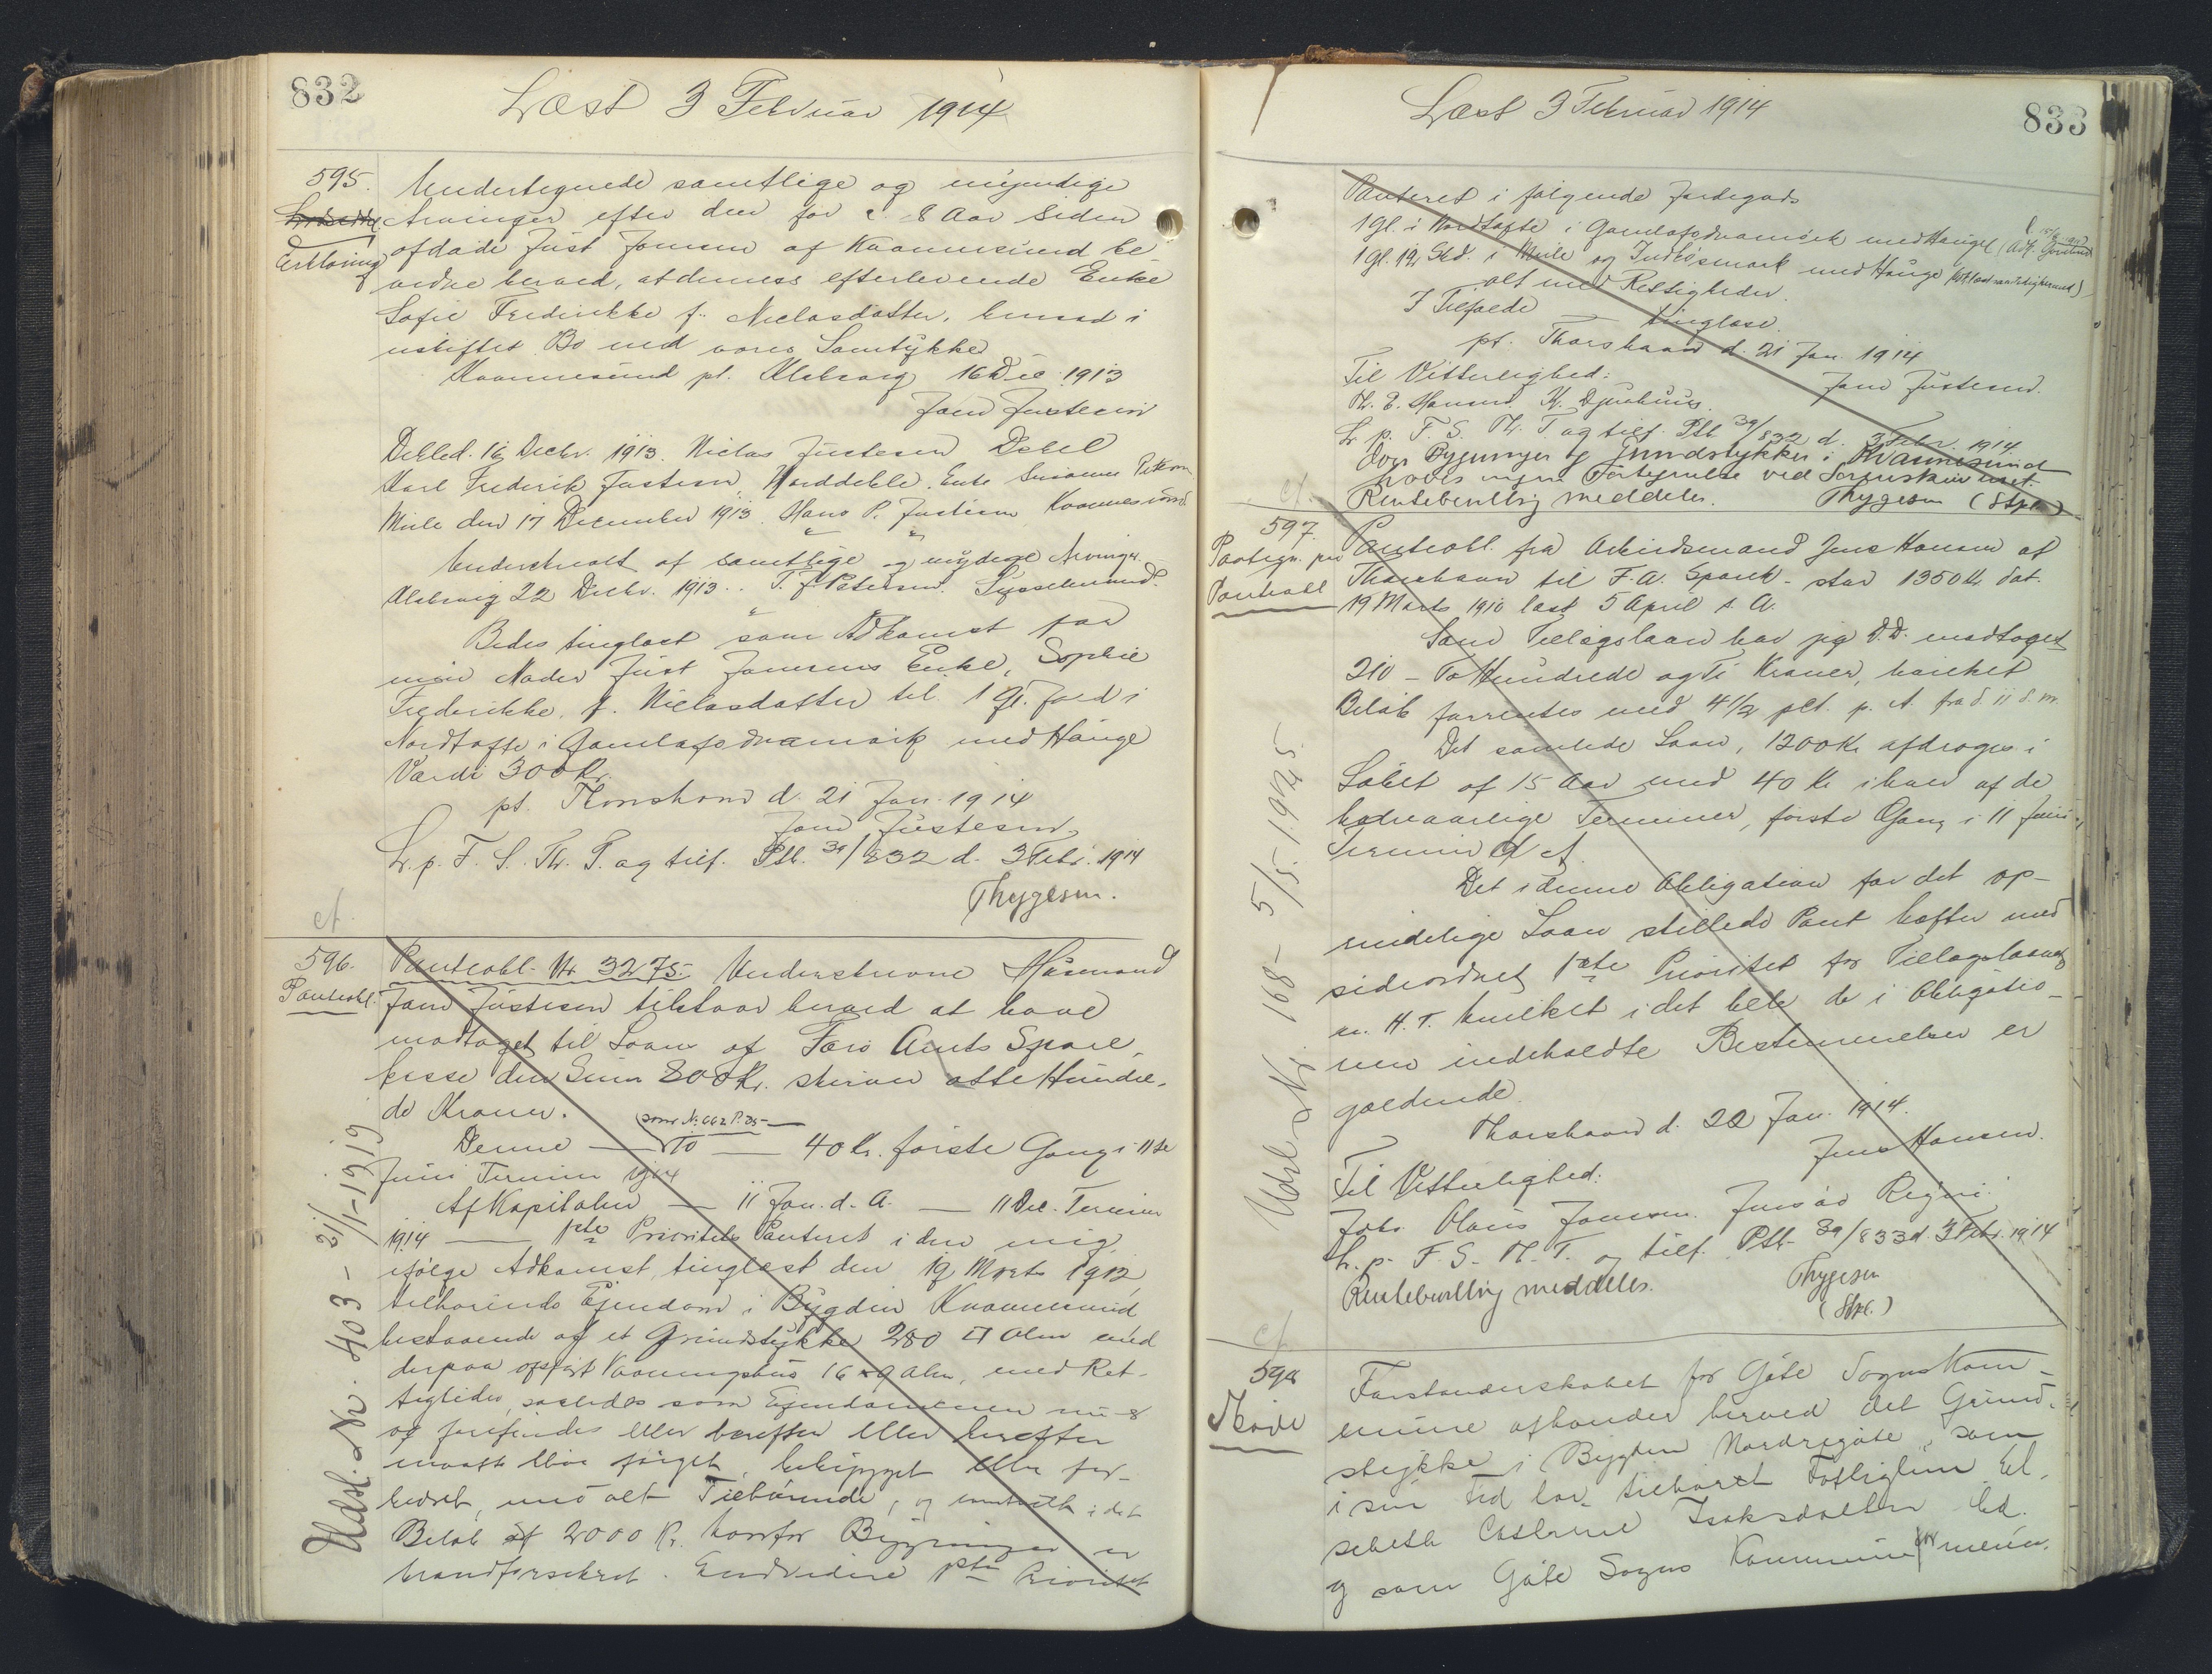 832
Læst 3 Februar 1914
595.
Erklæring
Undertegnede samtlige og myndige
Arvinger efter den for c. 8 Aar siden
afdøde Just Joensen af Kvannesund be-
vidne herved, at dennes efterlevende Enke
Sofie Frederikke f. Niclasdatter, hensad i
uskiftet Bo med vores Samtykke
Kvannesund pt. Klaksvig 16 Dec 1913
Joen Justesen
Debled. 16 Decbr. 1913. Niclas Justesen Debel
Karl Frederik Justesen, Norddeble. Enke Susanne Petersen
Mule den 17 December 1913. Hans P. Justesen Kvannesund.
Underskrevet af samtlige og myndige Arvinger.
Klaksvig 22 Decbr. 1913. T. J. Petersen. Sysselmand.
Bedes tinglæst som Adkomst for
min Moder Just Joensens Enke, Sophie
Frederikke, f. Niclasdatter til 1 Gl. Jord i
Nordtofte i Gamlafødnamørk med Hauge
Værdi 300 Kr.
pt. Thorshavn d. 21 Jan. 1914
Joen Justesen
L. p. F. S. Th. T. og tilf. Ptb. 39/832 d. 3 Febr. 1914
Thygesen.
cf.
596.
Panteobl.
Panteobl. Nr 3275. Underskrevne Husmand
Joen Justesen tilstaar herved at have
modtaget til Laan af Færø Amts Spare-
kasse den Sum 800 Kr. skriver otte Hundre-
de Kroner.
som N. 662 P. 25
Denne — To — 40 Kr. første Gang i 11te
Juni Termin 1914
Af Kapitalen — 11 Jan. d. A. — 11 Dec. Termin
1914 — 1ste Prioritets Panteret i den mig
ifølge Adkomst, tinglæst den 19 Marts 1912
tilhørende Ejendom i Bygden Kvannesund
bestaaende af et Grundstykke 280 □ Alen med
derpaa opført Vaaningshus 16 x 9 Alen, med Ret-
tigheder, saaledes som Ejendommen nu er
og forefindes eller herefter eller herefter
maatte blive forøget, bebygget eller for-
bedret, med alt Tilhørende, og eventuelt i det
Beløb af 2000 Kr. hvorfor Bygningen er
brandforsikret. Endvidere 1ste Prioritet
Udsl. Nr. 403 - 21/1-1919
833
Læst 3 Februar 1914
Panteret i følgende Jordegods
1 Gl. i Nordtofte i Gamlafødnamørk med Hauge
1 Gl. 12 Skd. i Mule og Indbøsmark med Hauge
alt med Rettigheder.
I Tilfælde — tinglæse.
pt. Thorshavn d. 21 Jan 1914
Til Vitterlighed:
Joen Justesen.
M. E. Hansen K. Djurhuus.
L. p. F. S. Th. T. og tilf. Ptb 39/832 d. 3 Febr. 1914
Rentebevilling meddeles.
Thygesen (Stpl.)
cf.
597.
Paategn. paa
Panteobl
Panteobl. fra Arbeidsmand Jens Hansen af
Thorshavn til F. A. Spark. - stor 1350 Kr dat.
19 Marts 1910 læst 5 April s. A.
Som Tillægslaan har jeg D.D. modtaget
210 - To Hundrede og Ti Kroner, hvilket
Beløb forrentes med 4 1/2 pCt. p. A. fra d. 11 d. m.
Det samlede Laan, 1200 Kr afdrages i
Løbet af 15 Aar med 40 Kr i hver af de
halvaarlige Terminer, første Gang i 11 Juni
Termin d. A.
Det i denne Obligation for det op-
rindelige Laan stillede Pant hæfter med
sideordnet 1ste Prioritet for Tillægslaanet
m. H. T. hvilket i det hele de i Obligatio-
nen indeholdte Bestemmelser er
gældende.
Thorshavn d. 22 Jan. 1914.
Jens Hansen.
Til Vitterlighed:
Johs. Olavis Joensen.
L. p. F. S. Th. T. og tilf. Ptb 39/833 d. 3 Febr. 1914
Rentebevilling meddeles.
Thygesen
(Stpl.)
Udsl. Nr. 168 - 5/5-1925.
cf.
598
Skøde
Forstanderskabet for Gøte Sogns Kom-
mune afhænder herved det Grund-
stykke i Bygden Nordregøte, som
i sin Tid har tilhørt Fattiglem El-
sebeth Cathrine Isaksdatter Ed.
og som Gøte Sogns Kommune for